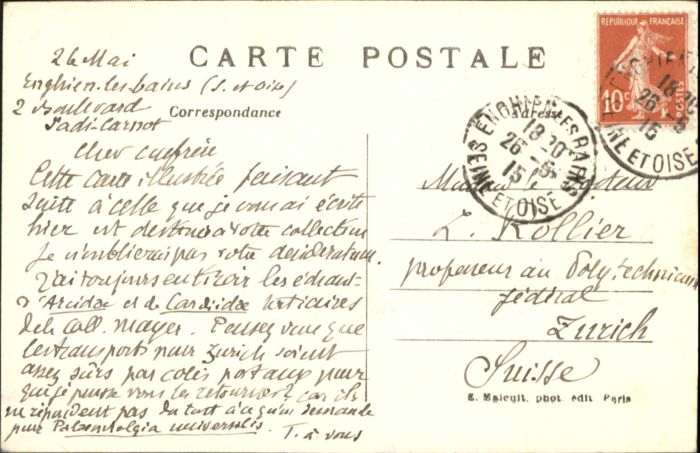 CARTE POSTALE
26 Mai
Enghien-les-bains (S. et Oise)
2 Boulevard
Sadi-Carnot
Correspondance
Adresse
Cher confrère
Cette carte illustrée faisant
suite à celle que je vous ai écrite
hier est destinée à votre collection
Je n'oublierai pas votre desideratum.
J'ai toujours en tiroir les échant.
d'Arcidae et de Cardiidae tertiaires
de la Coll. Mayer. Pensez-vous que
les transports pour Zurich soient
assez sûrs par colis postaux pour
que je puisse vous les retourner? car ils
ne répondent pas du tout à ce qu'on demande
pour Palaeontologia universalis.
T. à vous
REPUBLIQUE FRANÇAISE
10c
POSTES
ENGHIEN-LES-BAINS
18 30
26 -5
15
SEINE ET OISE
Monsieur le Docteur
L. Rollier
professeur au Polytechnicum
fédéral
Zurich
Suisse
E. Malcuit, phot. édit Paris